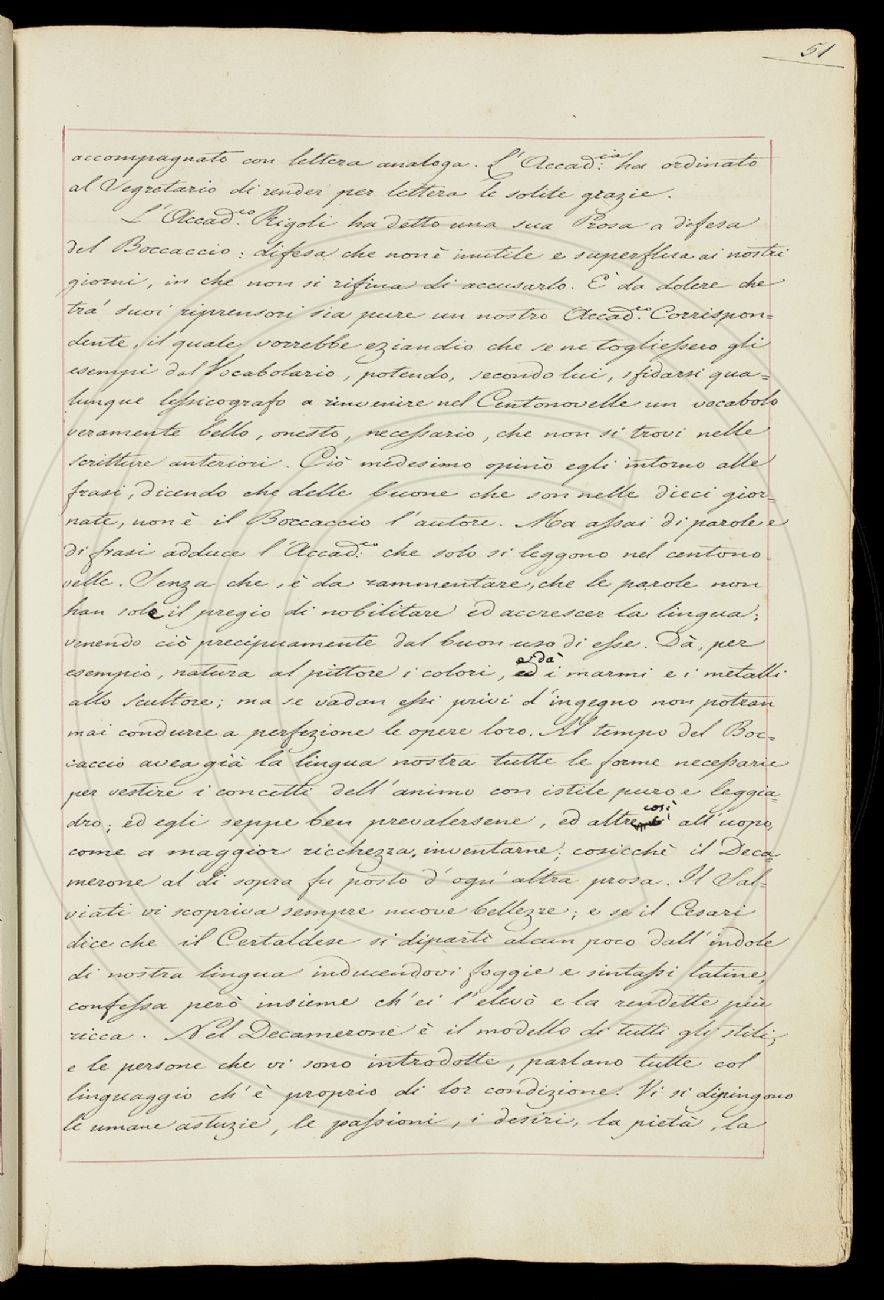 51
accompagnato con lettera analoga. L'Accad.ia ha ordinato
al Segretario di render per lettera le solite grazie.
L'Accad.co Rigoli ha detto una sua Prosa a difesa
del Boccaccio: difesa che non è inutile e superflua ai nostri
giorni, in che non si rifina di accusarlo. E' da dolere che
tra' suoi riprensori sia pure un nostro Accad.co Corrispon=
dente, il quale vorrebbe eziandio che se ne togliessero gli
esempi dal Vocabolario, potendo, secondo lui, sfidarsi qua=
lunque lessicografo a rinvenire nel Centonovelle un vocabolo
veramente bello, onesto, necessario, che non si trovi nelle
scritture anteriori. Ciò medesimo opinò egli intorno alle
frasi, dicendo che delle buone che son nelle dieci gior=
nate, non è il Boccaccio l'autore. Ma assai di parole e
di frasi adduce l'Accad.co che solo si leggono nel centono
velle. Senza che, è da rammentare, che le parole non
han sole il pregio di nobilitare ed accrescer la lingua;
venendo ciò precipuamente dal buon uso di esse. Dà, per
esempio, natura al pittore i colori, e dà i marmi e i metalli
allo scultore; ma se vadan essi privi d'ingegno non potran
mai condurre a perfezione le opere loro. Al tempo del Boc=
caccio avea già la lingua nostra tutte le forme necessarie
per vestire i concetti dell'animo con istile puro e leggia=
dro; ed egli seppe ben prevalersene, ed altre così all'uopo,
come a maggior ricchezza, inventarne; cosicchè il Deca=
merone al di sopra fu posto d'ogn'altra prosa. Il Sal=
viati vi scopriva sempre nuove bellezze; e se il Cesari
dice che il Certaldese si dipartì alcun poco dall'indole
di nostra lingua inducendovi foggie e sintassi latine,
confessa però insieme ch'ei l'elevò e la rendette più
ricca. Nel Decamerone è il modello di tutti gli stili,
e le persone che vi sono introdotte, parlano tutte col
linguaggio ch'è proprio di lor condizione. Vi si dipingono
le umane astuzie, le passioni, i desiri, la pietà, la